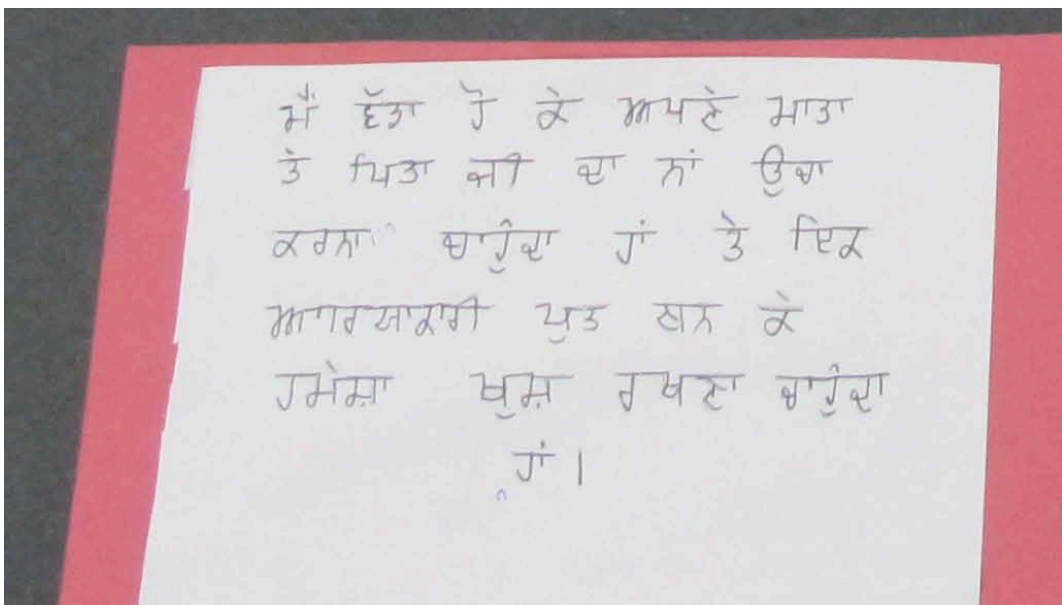 ਮੈਂ ਵੱਡਾ ਹੋ ਕੇ ਅਪਣੇ ਮਾਤਾ
ਤੇ ਪਿਤਾ ਜੀ ਦਾ ਨਾਂ ਉਚਾ
ਕਰਨਾ ਚਾਹੁੰਦਾ ਹਾਂ ਤੇ ਇਕ
ਪੁਤ ਬਨ ਕੇ
ਹਮੇਸ਼ਾ ਖੁਸ਼ ਰਖਣਾ ਚਾਹੁੰਦਾ
ਹਾਂ।